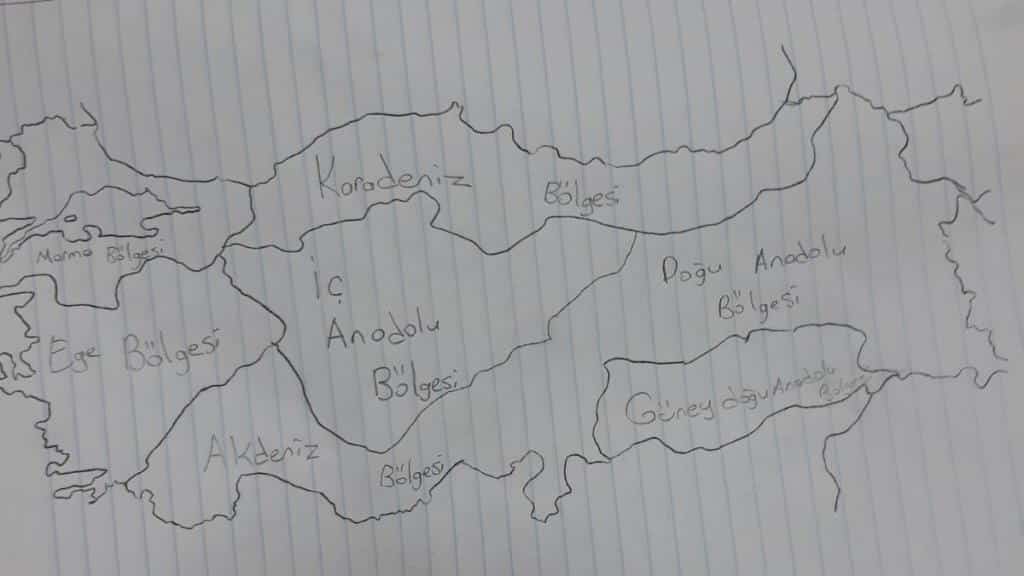 Karadeniz
Bölgesi
Marma Bölgesi
İç
Anadolu
Bölgesi
Doğu Anadolu
Bölgesi
Ege Bölgesi
Güneydoğu Anadolu
Bölgesi
Akdeniz
Bölgesi